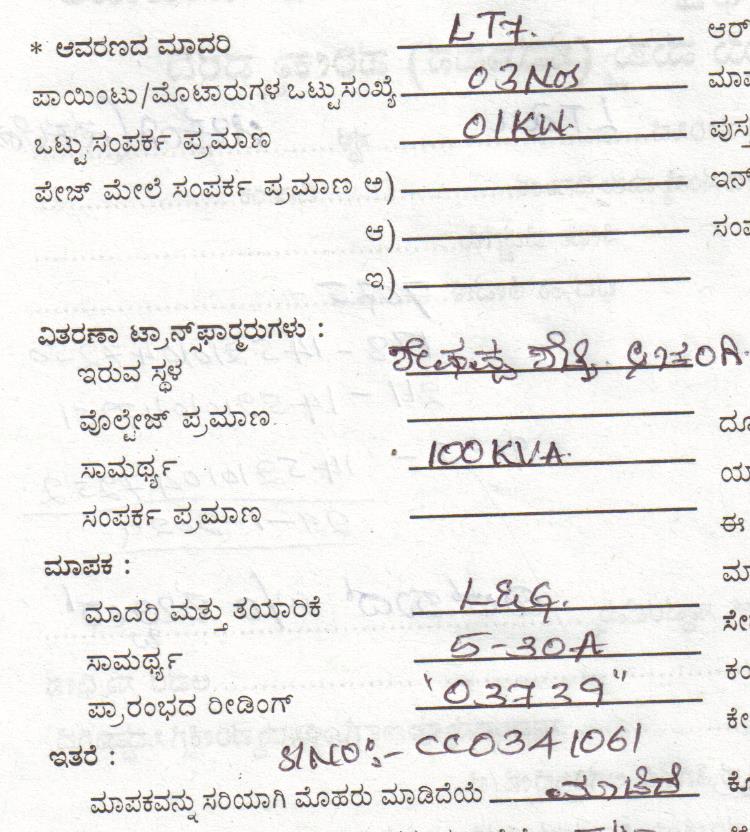 * ಆವರಣದ ಮಾದರಿ LT7. ಆರ್
ಪಾಯಿಂಟು/ಮೊಟಾರುಗಳ ಒಟ್ಟು ಸಂಖ್ಯೆ 03 Nos ಮಾಪ
ಒಟ್ಟು ಸಂಪರ್ಕ ಪ್ರಮಾಣ 01KW. ಪುಸ್ತ
ಪೇಜ್ ಮೇಲೆ ಸಂಪರ್ಕ ಪ್ರಮಾಣ ಅ) ಇನ್
ಆ) ಸಂಪ
ಇ)
ವಿತರಣಾ ಟ್ರಾನ್ಸ್‌ಫಾರ್‍ಮರುಗಳು :
ಇರುವ ಸ್ಥಳ
ವೊಲ್ಟೇಜ್ ಪ್ರಮಾಣ ದೂ
ಸಾಮರ್ಥ್ಯ 100 KVA. ಯ
ಸಂಪರ್ಕ ಪ್ರಮಾಣ ಈ
ಮಾಪಕ : ಮಾ
ಮಾದರಿ ಮತ್ತು ತಯಾರಿಕೆ L&G. ಸೇ
ಸಾಮರ್ಥ್ಯ 5-30A ಕಂ
ಪ್ರಾರಂಭದ ರೀಡಿಂಗ್ "03739" ಕೇ
ಇತರೆ : Sl No:- CC0341061
ಮಾಪಕವನ್ನು ಸರಿಯಾಗಿ ಮೊಹರು ಮಾಡಿದೆಯೆ ಮಾಡಿದೆ ಕೊ